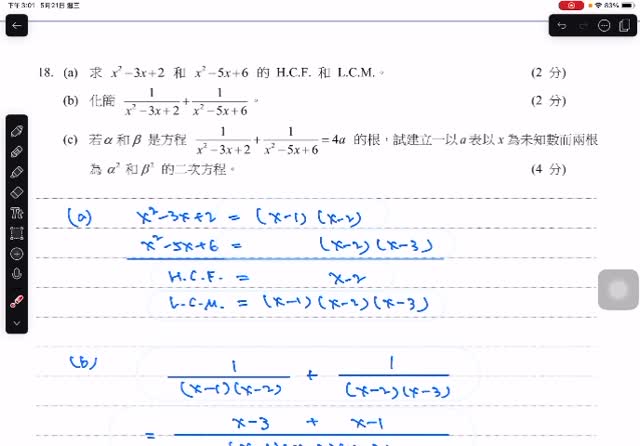 下午3:01 5月21日 週三 83%
18. (a) 求 x²−3x+2 和 x²−5x+6 的 H.C.F. 和 L.C.M.。 (2 分)
(b) 化簡 1/(x²−3x+2) + 1/(x²−5x+6)。 (2 分)
(c) 若 α 和 β 是方程 1/(x²−3x+2) + 1/(x²−5x+6) = 4a 的根，試建立一以 a 表以 x 為未知數而兩根
為 α² 和 β² 的二次方程。 (4 分)
(a) x²−3x+2 = (x−1)(x−2)
x²−5x+6 = (x−2)(x−3)
H.C.F. = x−2
L.C.M. = (x−1)(x−2)(x−3)
(b) 1/((x−1)(x−2)) + 1/((x−2)(x−3))
= x−3 + x−1